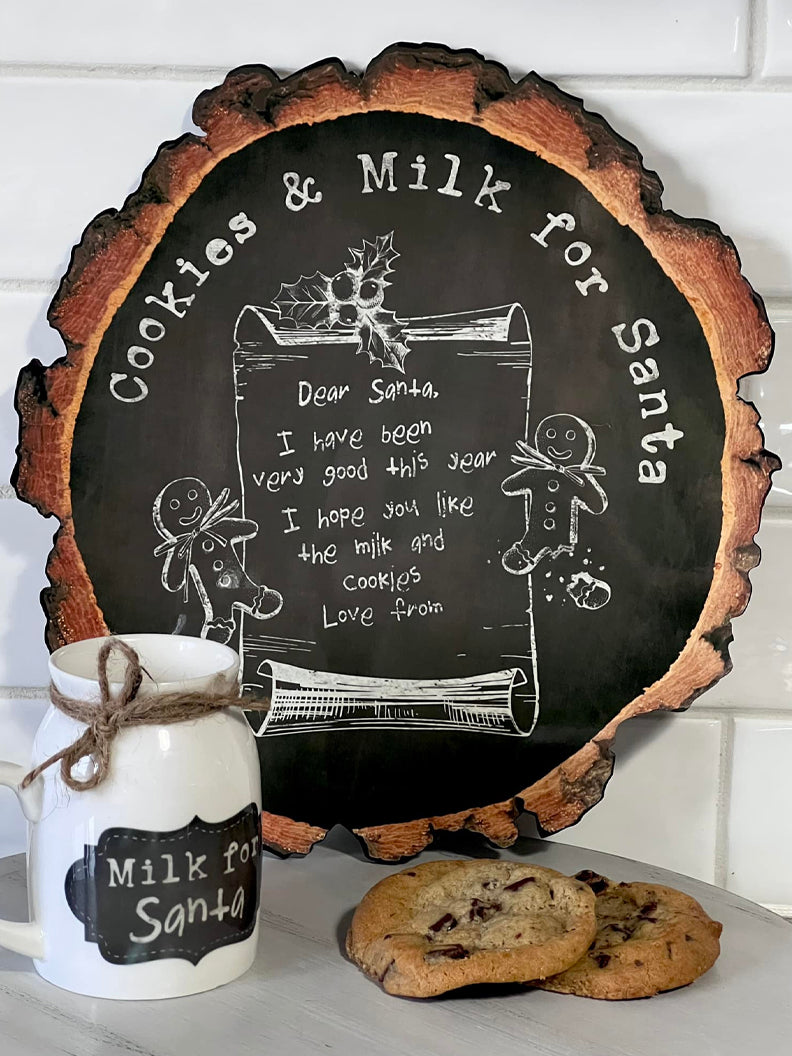 Cookies & Milk for Santa
Dear Santa,
I have been
very good this year
I hope you like
the milk and
cookies
Love from
Milk for
Santa